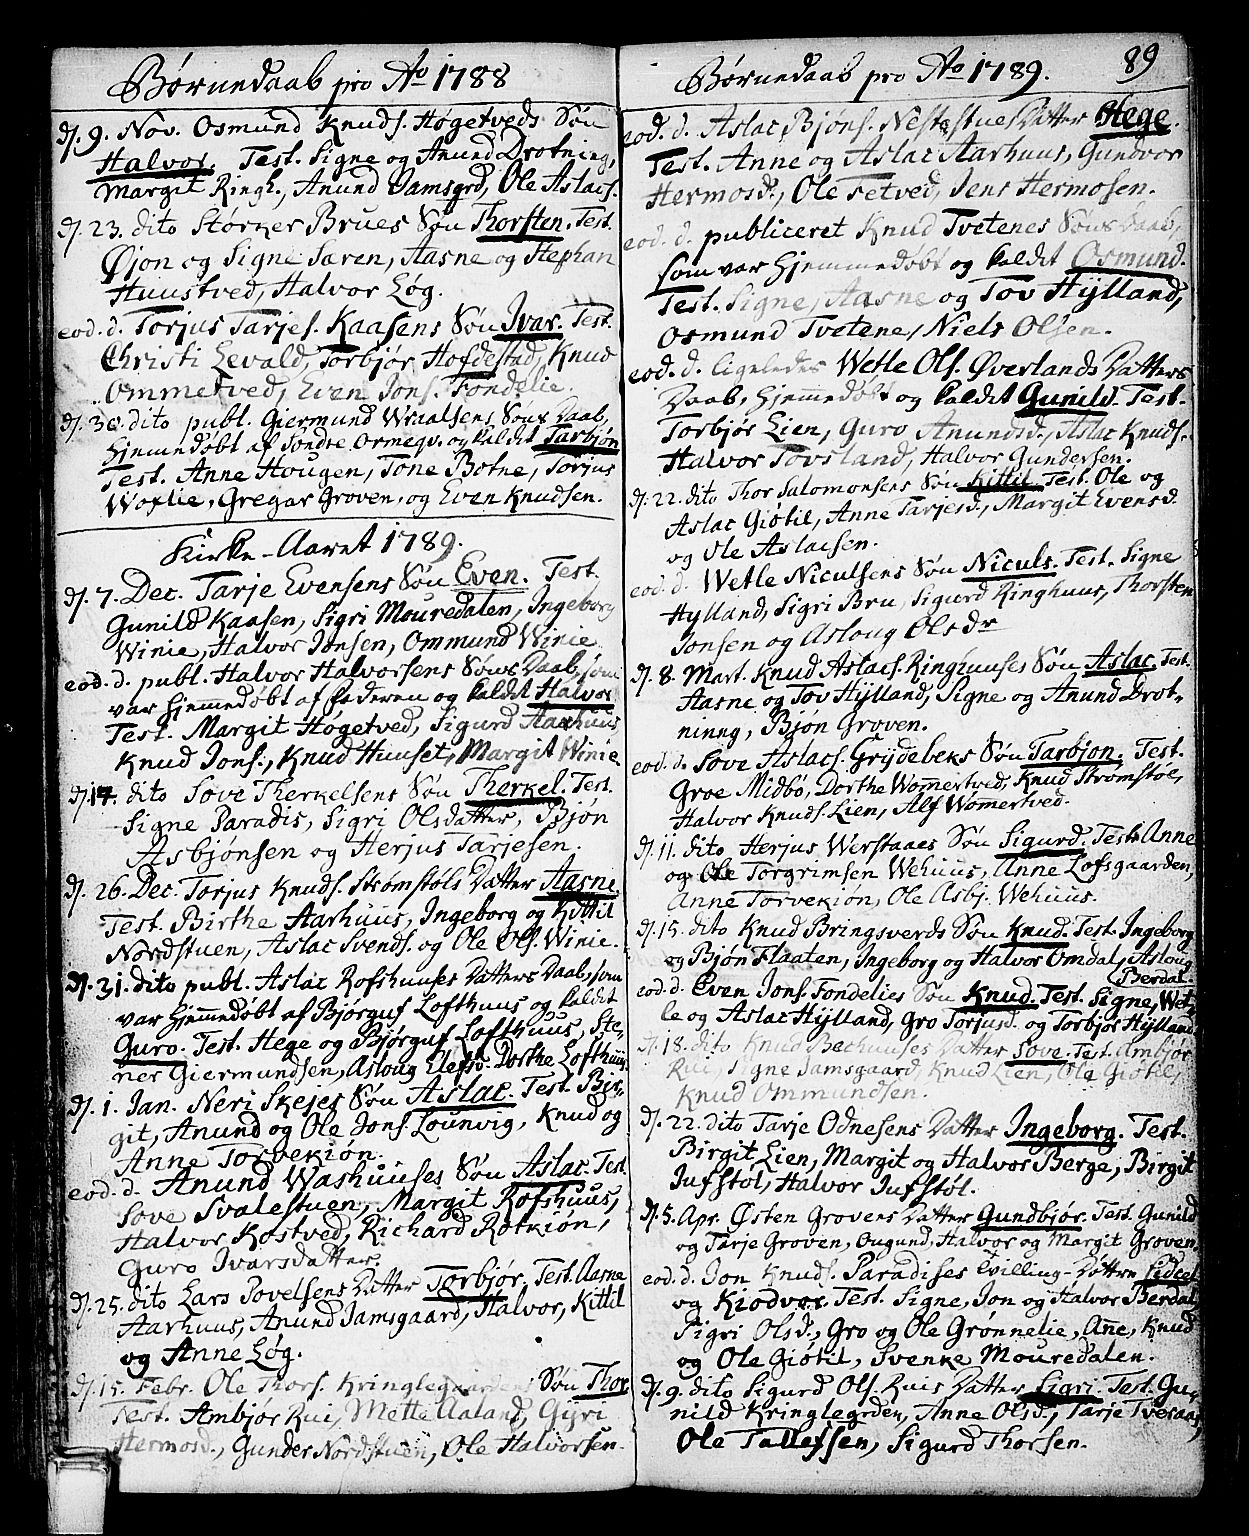 Børnedaab pro Ao 1788
D. 9. Nov. Osmund Knuds. Høgetveds Søn
Halvor. Test. Signe og Anund Drotning,
Margit Ringh., Anund Jamsgrd, Ole Aslacs.
D. 23. dito Størker Brues Søn Thorsten. Test.
Øjon og Signe Saren, Aasne og Stephan
Huustved, Halvor Løg.
eod. d. Torjus Tarjes. Kaasens Søn Ivar. Test.
Christi Levald, Torbjør Hofdestad, Knud
Ommetved, Even Jons. Fondelie.
D. 30. dito publ. Giermund Wraalsens Søns Daab,
hjemmedøbt af Søndre Ormegr. og kaldet Tarbjøn
Test. Anne Hougen, Tone Botne, Torjus
Woxlie, Gregar Groven, og Even Knudsen.
Kirke-Aaret 1789.
D. 7. Dec. Tarje Evensens Søn Even. Test.
Gunild Kaasen, Sigri Mouredalen, Ingeborg
Winie, Halvor Jonsen, Ommund Winie
eod. d. publ. Halvor Halvorsens Søns Daab, som
var hjemmedøbt af Faderen og kaldet Halvor
Test. Margit Høgetved, Sigurd Aarhuus
Knud Jons., Knud Huuset, Margit Winie
D. 14. dito Sove Therkelsens Søn Therkel. Test.
Signe Paradis, Sigri Olsdatter, Bjøn
Asbjønsen og Herjus Tarjesen.
D. 26. Dec. Torjus Knuds. Strømstøls Datter Aasne
Test. Birthe Aarhuus, Ingeborg og Kittil
Nordstuen, Aslac Svends. og Ole Ols. Winie.
D. 31. dito publ. Aslac Rofshuuses Datters Daab, som
var hjemmedøbt af Bjørguf Lofthuus og kaldet
Guro. Test. Hege og Bjørguf Lofthuus, Ste-
ner Giermundsen, Asloug Elefsd. Dorthe Lofthuus.
D. 1. Jan. Neri Skejes Søn Aslac. Test. Bir-
git, Anund og Ole Jons. Lounvig, Knud og
Anne Torvekiøn.
eod. d. Anund Washuuses Søn Aslac. Test.
Sove Svalestuen, Margit Rofshuus,
Halvor Kostved, Richard Rotkiøn,
Guro Ivarsdatter.
D. 25. dito Lars Sovelsens Datter Torbjør. Test. Aasne
Aarhuus, Anund Jamsgaard, Halvor, Kittil
og Anne Løg.
D. 15. Febr. Ole Thors. Kringlegaardens Søn Thor
Test. Ambjør Rui, Mette Aaland, Gipri
Hermosd., Gunder Nordstuen, Ole Halvorsen.
Børnedaab pro Ao 1789. 89
eod. d. Aslac Bjøns. Nestestues Datter Hege.
Test. Anne og Aslac Aarhuus, Gundvor
Hermosd., Ole Fetved, Jens Hermosen.
eod. d. publiceret Knud Tvetenes Søns Daab,
som var hjemmedøbt og kaldet Osmund.
Test. Signe, Aasne og Tov Hylland,
Osmund Tvetene, Niels Olsen.
eod. d. ligeledes Wetle Ols. Øverlands Datters
Daab, hjemmedøbt og kaldet Gunild. Test.
Torbjør Lien, Guro Anundsd., Aslac Knuds.
Halvor Tovsland, Halvor Gundersen.
D. 22. dito Thor Salomonsens Søn Kittil. Test. Ole og
Aslac Giøtil, Anne Tarjesd., Margit Evensd.
og Ole Aslacsen.
eod. d. Wetle Niculsens Søn Niculs. Test. Signe
Hylland, Sigri Bru, Sigurd Ringhuus, Thorsten
Jonsen og Asloug Olsdr
D. 8. Mart. Knud Aslacs. Ringhuuses Søn Aslac. Test.
Aasne og Tov Hylland, Signe og Anund Drot-
ning, Bjøn Groven.
eod. d. Sove Aslacs. Grydebeks Søn Tarbjøn. Test.
Groe Midbø, Dorthe Womertved, Knud Strømstøl,
Halvor Knuds. Lien, Alf Womertved.
D. 11. dito Herjus Werstaaes Søn Sigurd. Test. Anne
og Ole Torgrimsen Wehuus, Anne Lofsgaarden,
Anne Torvekiøn, Ole Asbj. Wehuus.
D. 15. dito Knud Bringsverds Søn Knud. Test. Ingeborg
og Bjøn Flaaten, Ingeborg og Halvor Omdal, Asloug
Berdal
eod. d. Even Jons. Fondelies Søn Knud. Test. Signe, Wet-
le og Aslac Hylland, Gro Torjusd. og Torbjør Hylland
D. 18. dito Knud Bechuuses Datter Sove. Test. Ambjør
Rui, Signe Jamsgaard, Knud Lien, Ole Giøtil,
Knud Ommundsen.
D. 22. dito Tarje Odnesens Datter Ingeborg. Test.
Birgit Lien, Margit og Halvor Berge, Birgit
Jufstøl, Halvor Jufstøl.
D. 5. Apr. Østen Grovens Datter Gundbjør. Test. Gunild
og Tarje Groven, Ougund, Halvor og Margit Groven.
eod. d. Jon Knuds. Paradises Tvilling-Døttre Sidcel
og Kiødvor. Test. Signe, Jon og Halvor Berdal,
Sigri Olsd., Gro og Ole Grønnelie, Anne, Knud
og Ole Giøtil, Svenke Mouredalen.
D. 9. dito Sigurd Ols. Ruis Datter Sigri. Test. Gu-
nild Kringlegrden, Anne Olsd., Tarje Tveraas,
Ole Tallefsen, Sigurd Thorsen.